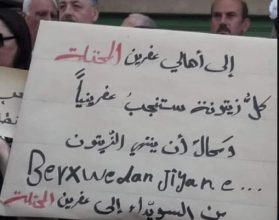 إلى أهالي عفرين المحتلة
كلّ زيتونة ستنجبُ عفرينياً
ومحال أن ينتهي الزيتون
Berxwedan Jiyane...
من السويداء إلى عفرين المحتلة